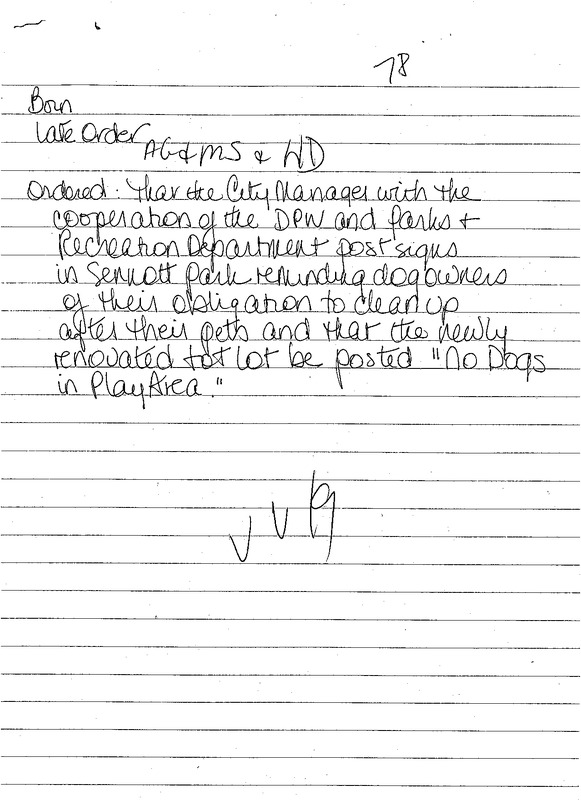 78
Born
Late Order
AG & MS & WD
Ordered: That the City Manager with the
cooperation of the DPW and Parks +
Recreation Department post signs
in Sennott Park reminding dog owners
of their obligation to clean up
after their pets and that the newly
renovated tot lot be posted "No Dogs
in Play Area."